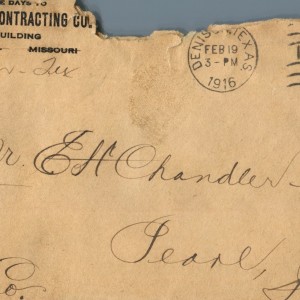 DAYS TO
CONTRACTING CO.
BUILDING
MISSOURI
Tex
DENISON, TEXAS
FEB 19
3-PM
1916
Mr. E H Chandler
Pearl,
Co.